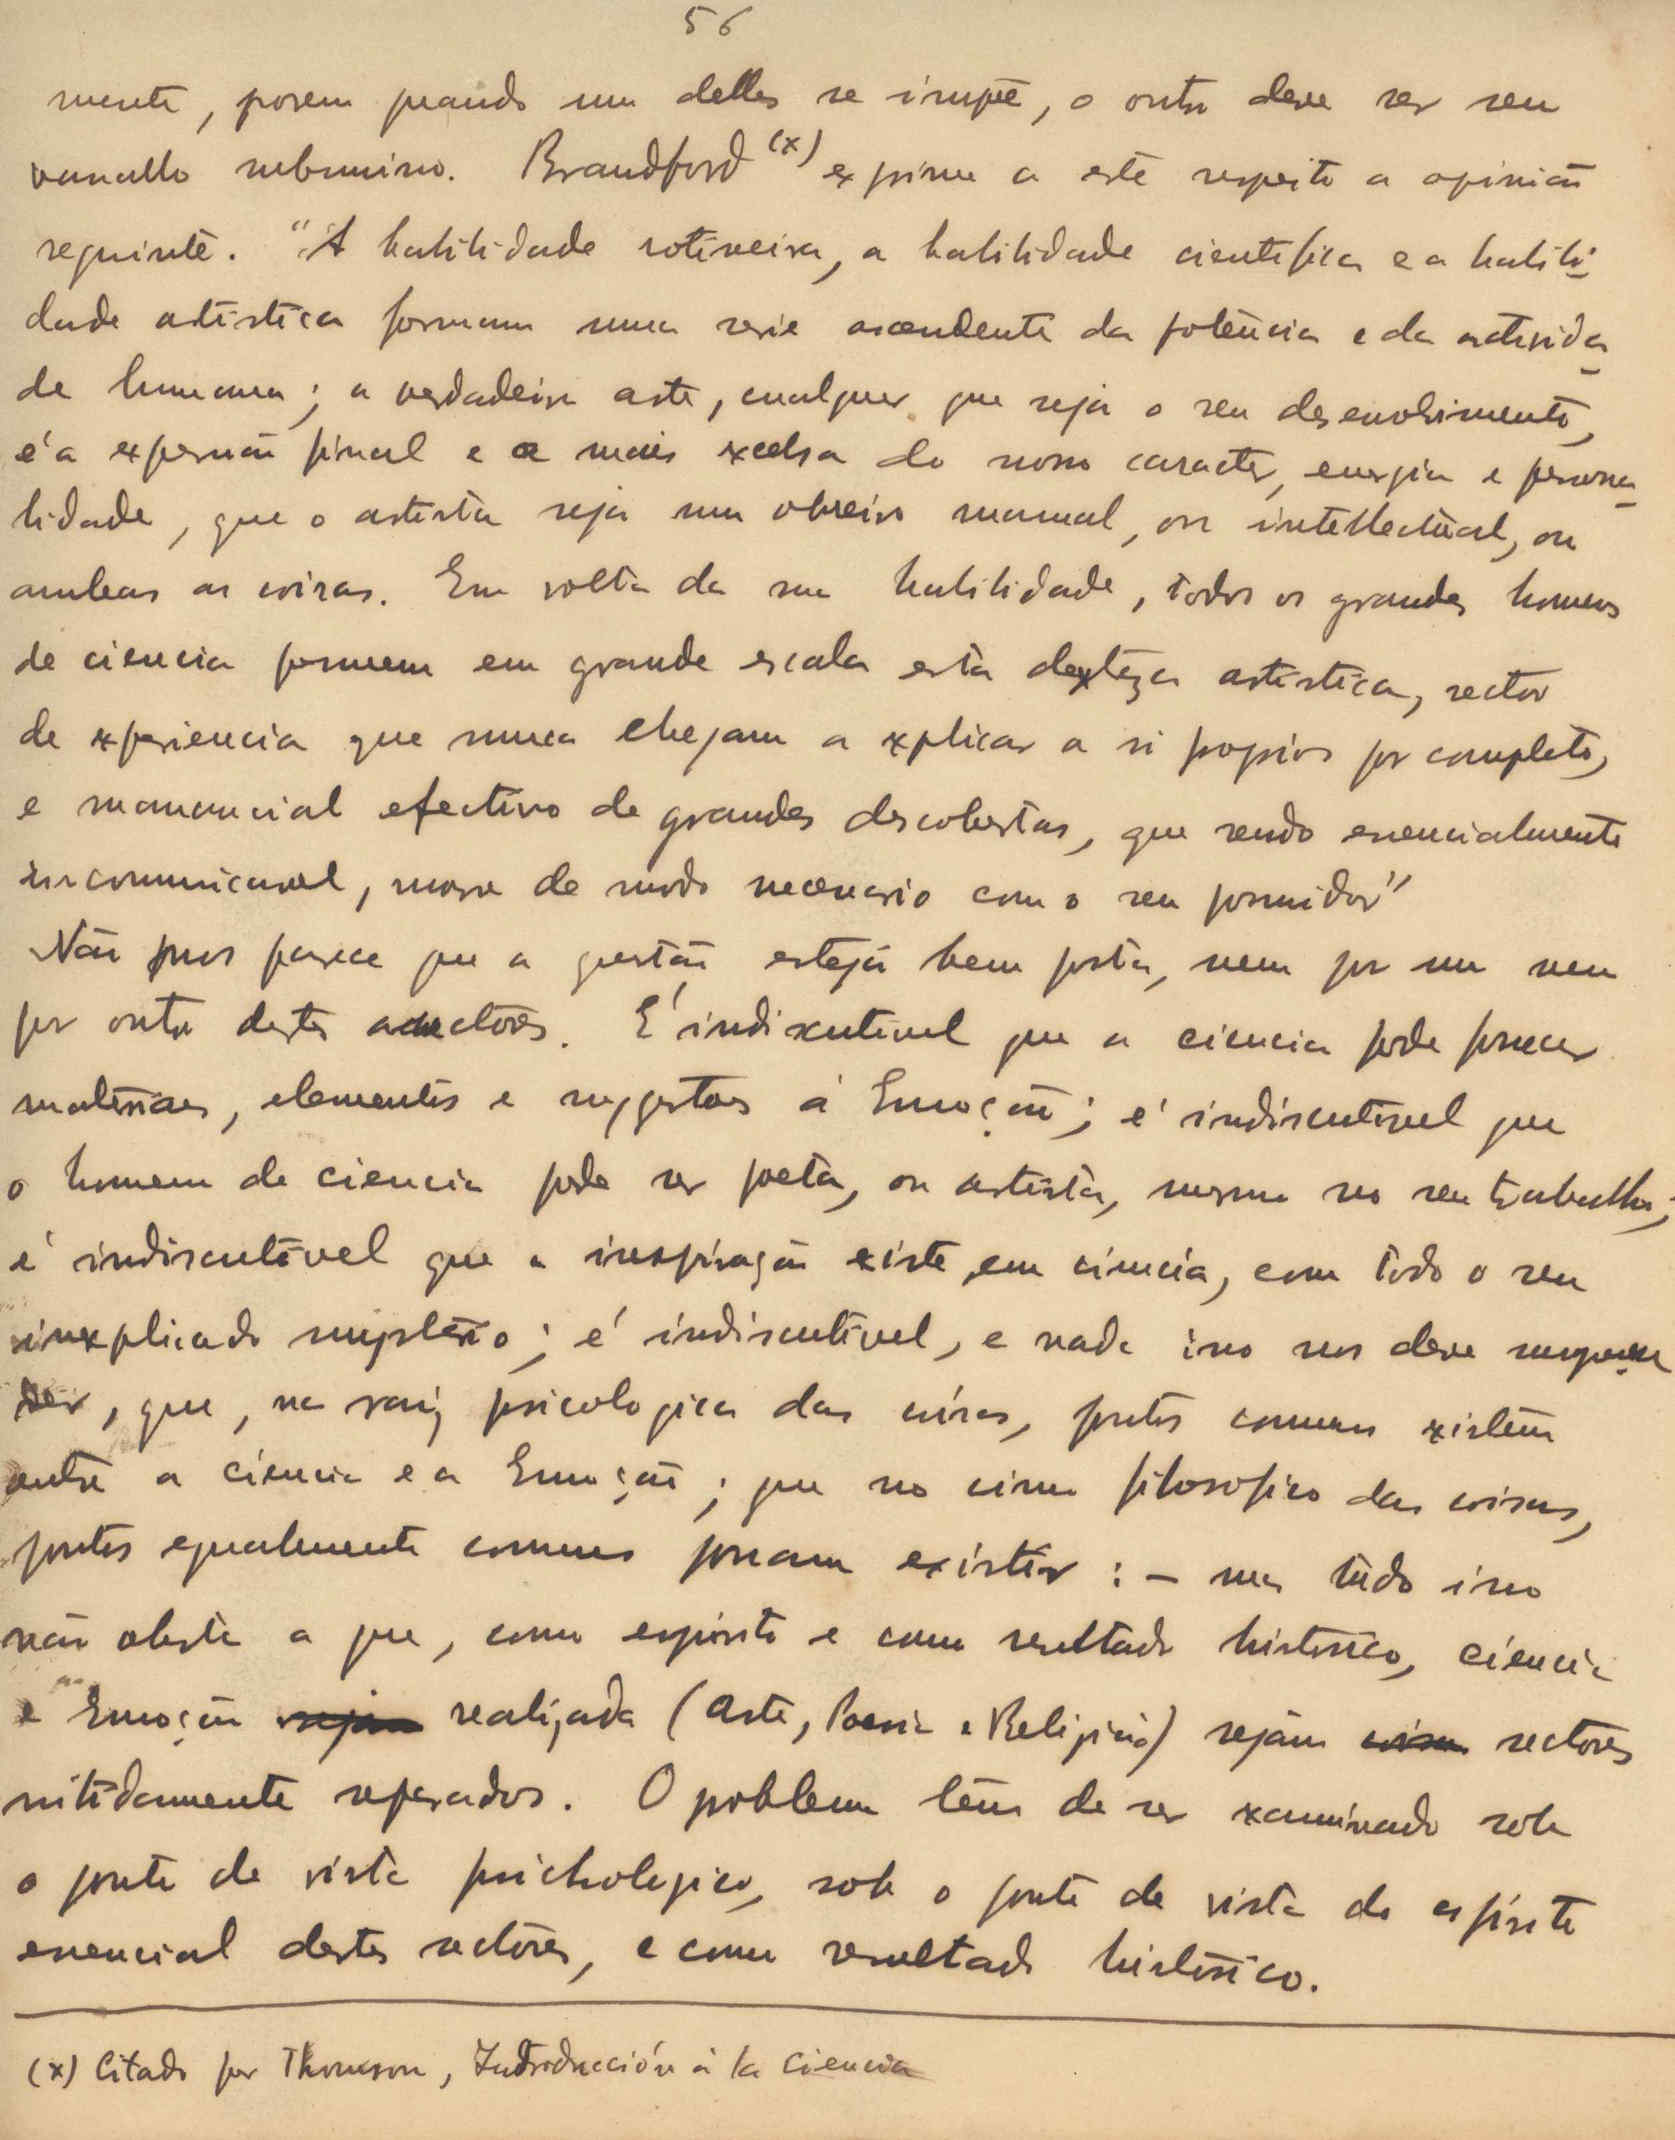 56
mente, porem quando um delles se impõe, o outro deve ser seu
vassallo submisso. Brandford (x) exprime a este respeito a opinião
seguinte. "A habilidade rotineira, a habilidade cientifica e a habili-
dade artistica formam uma serie ascendente da potência e da activida-
de humana; a verdadeira arte, cualquer que seja o seu desenvolvimento,
é a expressão final e a mais excelsa do nosso caracter, energia e persona-
lidade, que o artista seja um obreiro manual, ou intellectual, ou
ambas as coisas. Em volta da sua habilidade, todos os grandes homens
de ciencia possuem em grande escala esta dexteza artistica, sector
de experiencia que nunca chegam a explicar a si proprios por completo,
e manancial efectivo de grandes descobertas, que sendo essencialmente
incommunicavel, morre de modo necessario com o seu possuidor"
Não nos parece que a questão esteja bem posta, nem por um nem
por outro destes auctores. É indiscutivel que a ciencia pode fornecer
materiaes, elementos e suggestões á Emoção; é indiscutivel que
o homem de ciencia pode ser poeta, ou artista, mesmo no seu trabalho;
é indiscutivel que a inspiração existe, em ciencia, com todo o seu
inexplicado mysterio; é indiscutivel, e nada isso nos deve surpreen
der, que, na raiz psicologica das coisas, pontos comuns existem
entre a ciencia e a Emoção; que no cimo filosofico das coisas,
pontos egualmente comuns possam existir: – mas tudo isso
não obsta a que, como espirito e como resultado historico, ciencia
e Emoção realizada (Arte, Poesia e Religião) sejam sectores
nitidamente separados. O problema tem de ser examinado sob
o ponto de vista psichologico, sob o ponto de vista do espirito
essencial destes sectores, e como resultado historico.
(x) Citado por Thomson, Introducción á la Ciencia